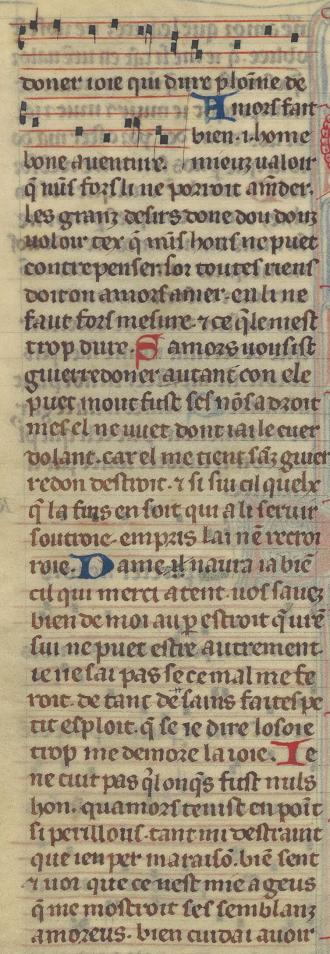 doner ioie qui dure ploīne de
Amors fait
bien .i. home
bone auenture. mieuz ualoir
q̄ nūs fors li ne porroit am̄der.
les granz desirs done dou douz
uoloir tex q̄ nūs hons ne puet
contrepenser. sor toutes riens
doit on amors amer. en li ne
faut fors mesure. ⁊ ce q̄le mest
trop dure. S amors uousist
guierredoner autant con ele
puet mout fust ses nōs a droit
mes el ne uuet dont iai le cuer
dolant. car el me tient sāz guier
redon destroit. ⁊ si sui cil quelx
q̄ la fins en soit qui a li seruir
soutroie. empris lai nē recroi
roie. Dame il naura ia biē
cil qui merci atent. uos sauez
bien de moi au p estroit q̄ urē
sui ne puet estre autrement.
ie ne sai pas se ce mal me fe
roit. de tanz dessaiis faites pe
tit esploit. q̄ se ie dire losoie
trop me demore la ioie. Ie
ne cuit pas q̄lonq̄s fust nuls
hon. quamors tenist en poīt
si perillous. tant mi destraint
que ien per ma raisō. biē sent
⁊ uoi que ce nest mie a geus
q̄ me mostroit ses semblanz
amoreus. bien cuidai auoir